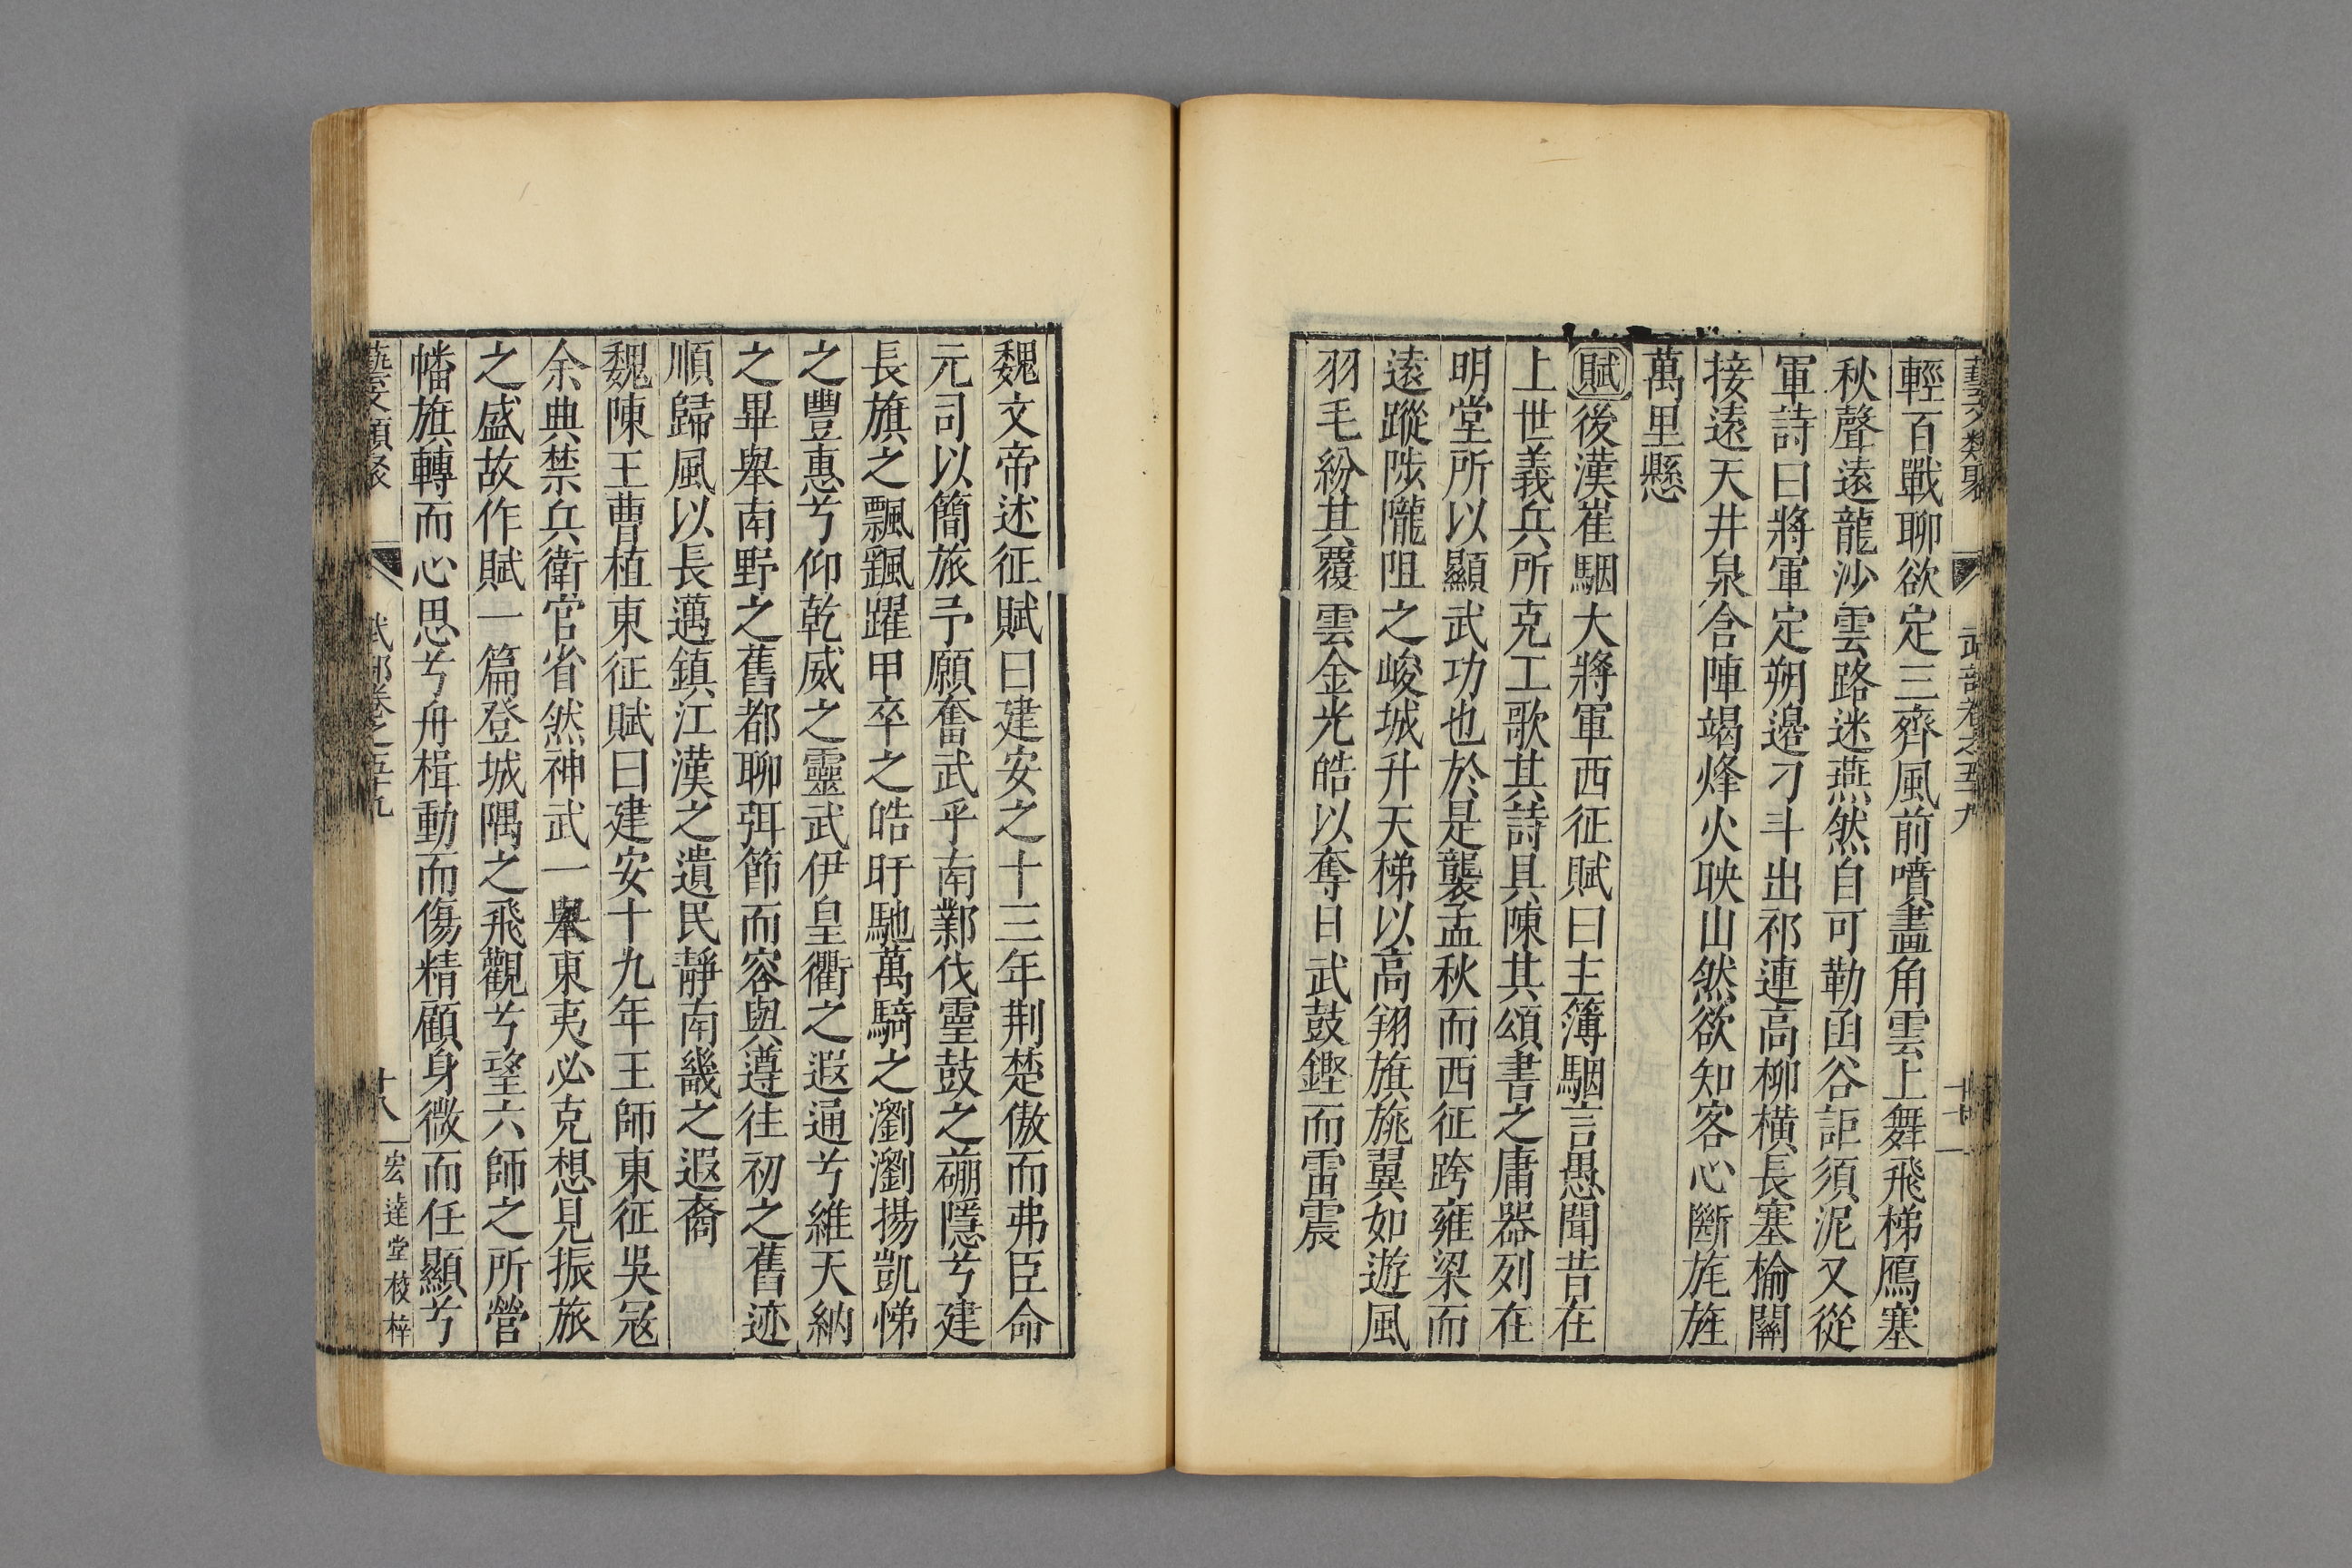 藝文類聚 武部卷之五十九
輕百戰聊欲定三齊風前噴畫角雲上舞飛梯鴈塞
秋聲遠龍沙雲路迷燕然自可勒函谷詎須泥又從
軍詩曰將軍定朔邊刁斗出祁連高柳橫長塞楡關
接遠天井泉含陣竭烽火映山然欲知客心斷旄旌
萬里懸
賦後漢崔駰大將軍西征賦曰主簿駰言愚聞昔在
上世義兵所克工歌其詩具陳其頌書之庸器列在
明堂所以顯武功也於是襲孟秋而西征跨雍梁而
遠蹤陟隴阻之峻城升天梯以高翔旗旐翼如遊風
羽毛紛其覆雲金光皓以奪日武鼓鏗而雷震
魏文帝述征賦曰建安之十三年荆楚傲而弗臣命
元司以簡旅予願奮武乎南鄴伐靈鼓之硼隱兮建
長旗之飄颻躍甲卒之皓旰馳萬騎之瀏瀏揚凱悌
之豐惠兮仰乾威之靈武伊皇衢之遐通兮維天納
之畢舉南野之舊都聊弭節而容與遵往初之舊迹
順歸風以長邁鎮江漢之遺民靜南畿之遐裔
魏陳王曹植東征賦曰建安十九年王師東征吳宼
余典禁兵衛官省然神武一舉東夷必克想見振旅
之盛故作賦一篇登城隅之飛觀兮望六師之所營
幡旗轉而心思兮舟楫動而傷精顧身微而任顯兮
藝文類聚 武部卷之五十九 十八 宏達堂校梓